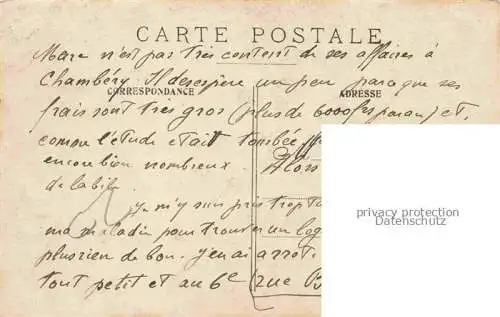 CARTE POSTALE
Marc n'est pas très content de ses affaires à
Chambéry. Il desespère un peu parce que ses
CORRESPONDANCE ADRESSE
frais sont très gros (plus de 6000 frs par an) et,
comme l'étude était tombée
encore bien nombreux.
de la bile
Je m'y suis pris trop ta
ma maladie pour trouver un log
plus rien de bon. J'en ai arrêt
tout petit et au 6e (rue
privacy protection
Datenschutz